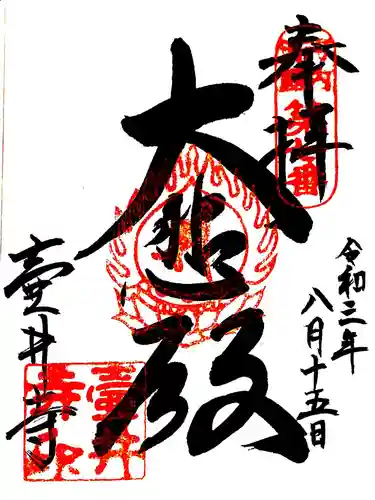 奉拝
令和三年
八月十五日
大悲殿
壷井寺